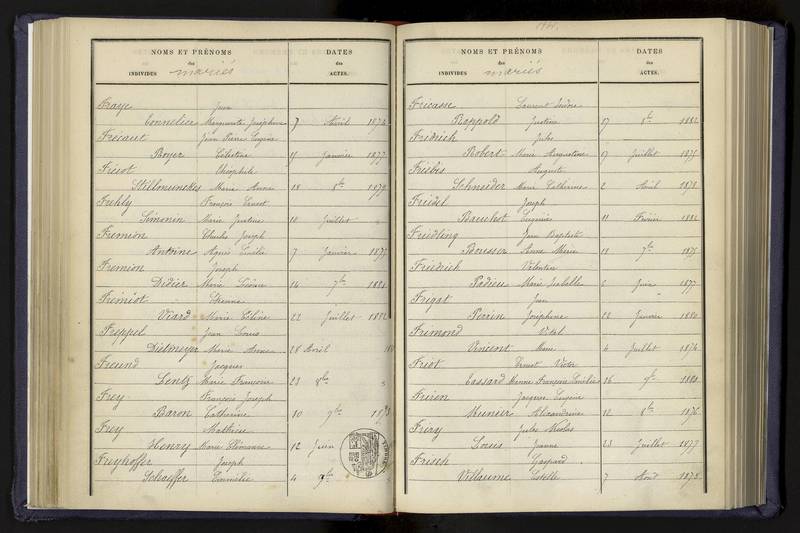 NOMS ET PRÉNOMS
des
INDIVIDUS mariés
DATES
des
ACTES.
Fraye Jean
Connelier Marguerite Joséphine 7 Avril 1874
Jean Pierre Eugène
Boyer Célestine 15 Janvier 1877
Théophile
Marie Anne 18 8bre 1879
Frehly François Ernest
Simonin Marie Justine 10 Juillet
Fremion Charles Joseph
Antoine Agnès Emélie 7 Janvier 1877
Fremion Joseph
Didier Marie 14 7bre 1881
Fremiot Etienne
Viard Marie Céline 22 Juillet 1882
Freppel Jean Louis
Dielmeyer Marie Anne 28 Avril
Freund Jacques
Lentz Marie Françoise 23 8bre
Frey François Joseph
Baron Catherine 10 9bre
Frey Mathieu
Henry Marie 12 Juin
Freyhoffer Joseph
Schaeffer Emmelie 4 9bre
NOMS ET PRÉNOMS
des
INDIVIDUS mariés
DATES
des
ACTES.
Fricasse Laurent Isidore
Roppold Justine 17 8bre 1882
Fridrich Jules
Robert Marie Augustine 17 Juillet 1875
Auguste
Schneider Marie Catherine 2 Avril 1878
Friedel Joseph
Bauchot Eugénie 11 Février 1882
Friedling Jean Baptiste
Anne Marie 11 7bre 1875
Friedrich Valentin
Marie Isabelle 2 Juin 1877
Frigat Jean
Perrin Joséphine 22 Janvier 1880
Frimond Vital
Vincent Marie 4 Juillet 1874
Friot Ernest Victor
Cassard Françoise 16 9bre 1880
Jacques Eugène
Munier Alexandrine 12 8bre 1876
Jules Nicolas
Louis Jeanne 23 Juillet 1877
Frisch Gaspard
Villaume Estelle 7 Août 1875